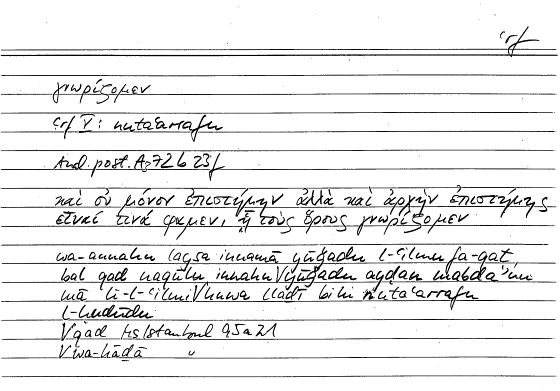 ʿrf
γνωρίζομεν
ʿrf V: nutaʿarrafu
And. post. A3 72 b 23f
καὶ οὐ μόνον ἐπιστήμην ἀλλὰ καὶ ἀρχὴν ἐπιστήμης
εἶναί τινά φαμεν, ᾗ τοὺς ὅρους γνωρίζομεν
wa-annahu laysa innamā yūǧadu l-ʿilmu fa-qaṭ
bal qad naqūlu innahu V yūǧadu ayḍan mabdaʾun
mā li-l-ʿilmi V huwa lladī bihi nutaʿarrafu
l-ḥudūdu
V Hs Istanbul 95a21
V wa-hāḏā "